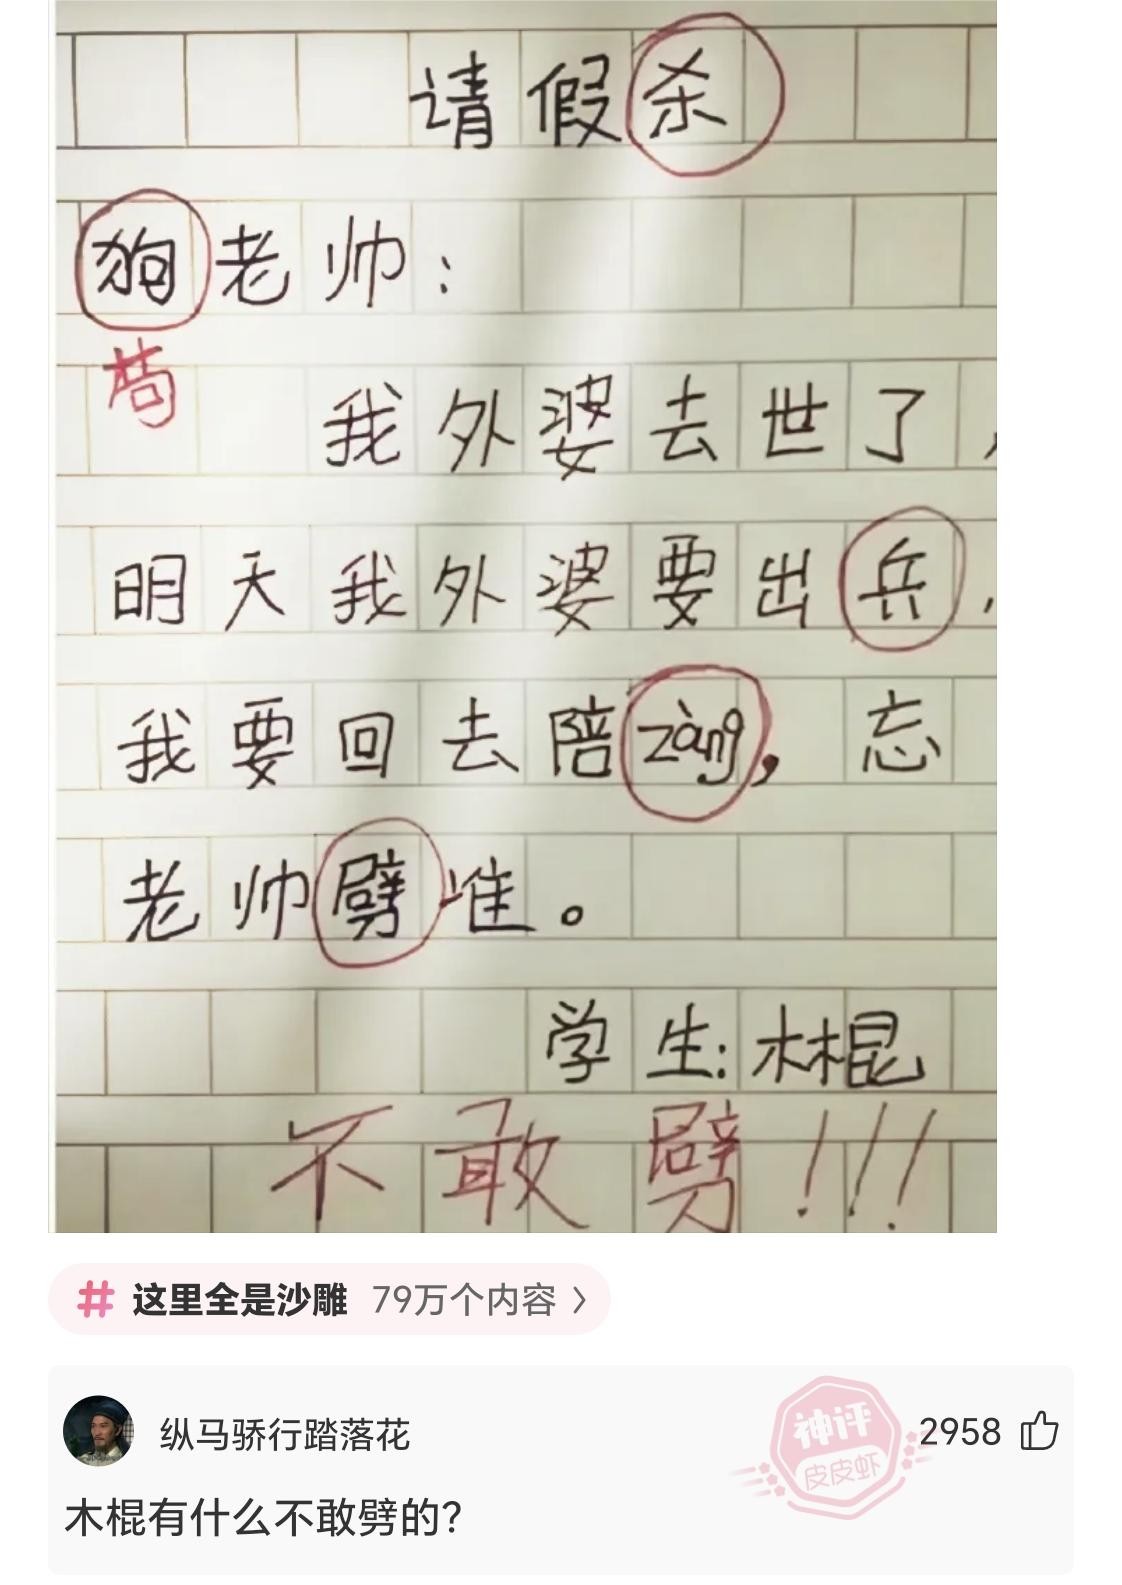 请假杀
狗老帅：
苟
我外婆去世了，
明天我外婆要出兵，
我要回去陪zàng，忘
老帅劈准。
学生：木棍
不敢劈!!!
# 这里全是沙雕 79万个内容 >
纵马骄行踏落花
神评
皮皮虾
2958
木棍有什么不敢劈的?